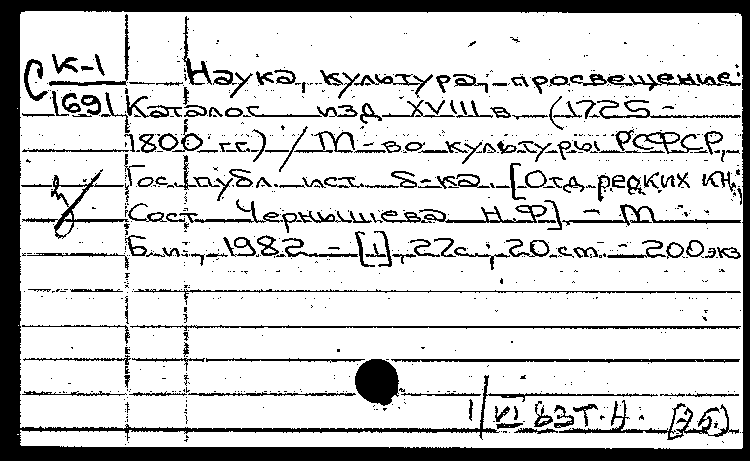 С К-1 Наука, культура, просвещение:
1691 Каталог изд. XVIII в. (1725 -
1800 гг.) / М-во культуры РСФСР,
Гос. публ. ист. б-ка. [Отд. редких кн.;
Сост. Чернышева Н.Ф]. - М.:
Б.и., 1982 - [1], 22с.; 20 cm - 200 экз
1/VI 83 Т.Н. (2б.)